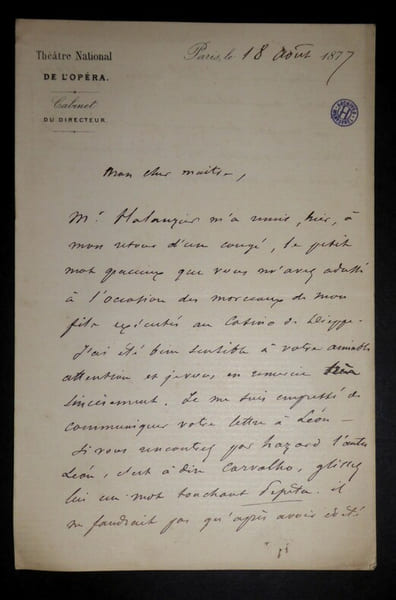 Théâtre National
DE L'OPÉRA.
Cabinet
DU DIRECTEUR.
Paris, le 18 Août 1877
Mon cher maître,
Mr Halanzier m'a remis, hier, à
mon retour d'un congé, le petit
mot gracieux que vous m'avez adressé
à l'occasion des morceaux de mon
fils exécutés au Casino de Dieppe.
J'ai été bien sensible à votre aimable
attention et je vous en remercie très
sincèrement. Je me suis empressé de
communiquer votre lettre à Léon –
Si vous rencontrez par hazard l'autre
Léon, c'est à dire Carvalho, glissez
lui un mot touchant Pépita. il
ne faudrait pas qu'après avoir été